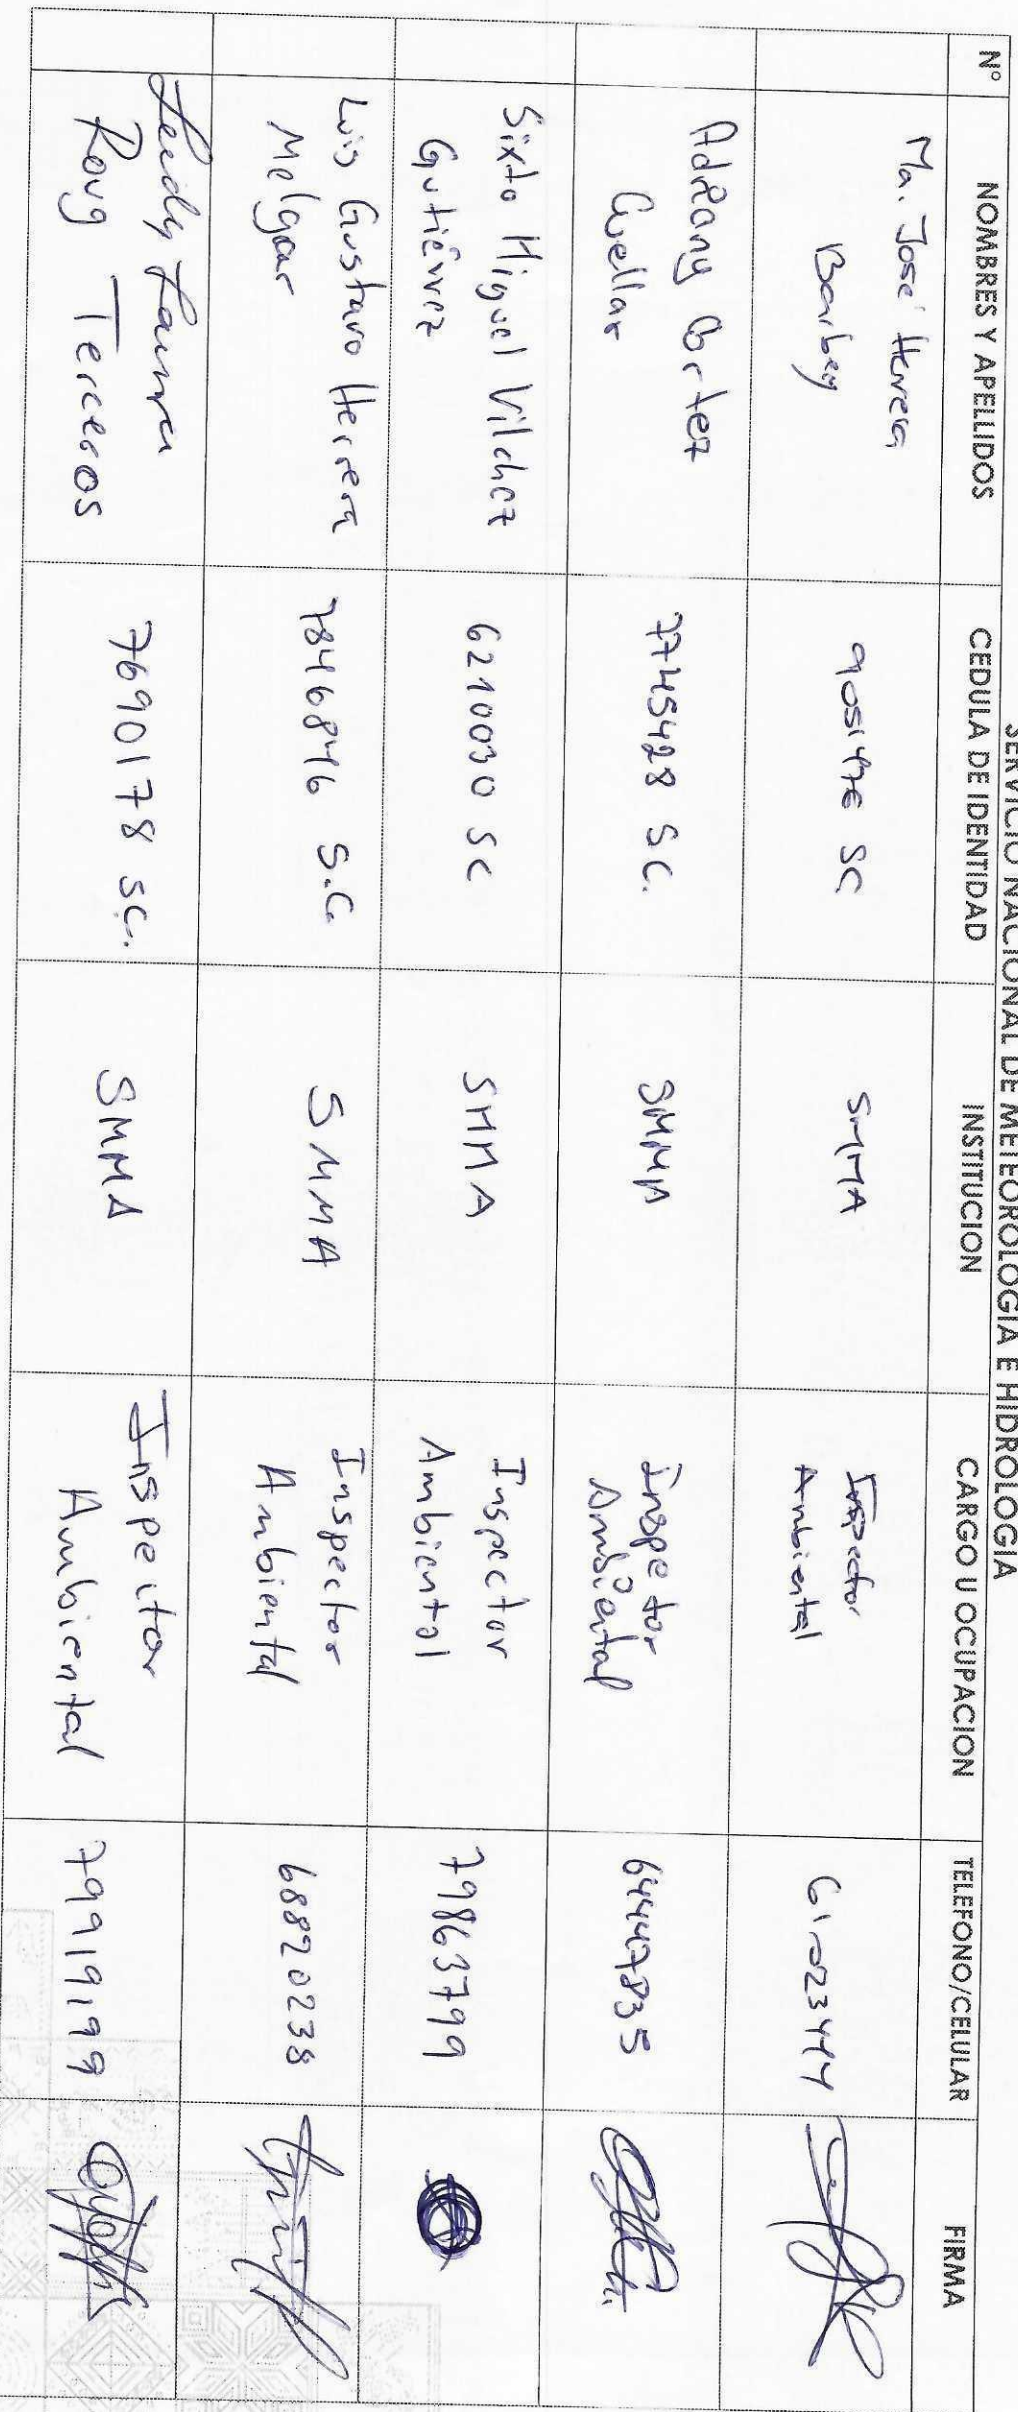 SERVICIO NACIONAL DE METEOROLOGIA E HIDROLOGIA
N° NOMBRES Y APELLIDOS CEDULA DE IDENTIDAD INSTITUCION CARGO U OCUPACION TELEFONO/CELULAR FIRMA
Ma. José Herrera
Barbery
SC SMMA Inspector
Ambiental
Cortez
Cuellar
7745428 SC. SMMA Inspector
Ambiental
64447835
Sixto Miguel Vilchez
Gutiérrez
6210030 SC SMMA Inspector
Ambiental
79863799
Luis Gustavo Herrera
Melgar
7846846 S.C. SMMA Inspector
Ambiental
68820238
Roug Terceros
7690178 SC. SMMA Inspector
Ambiental
79919199